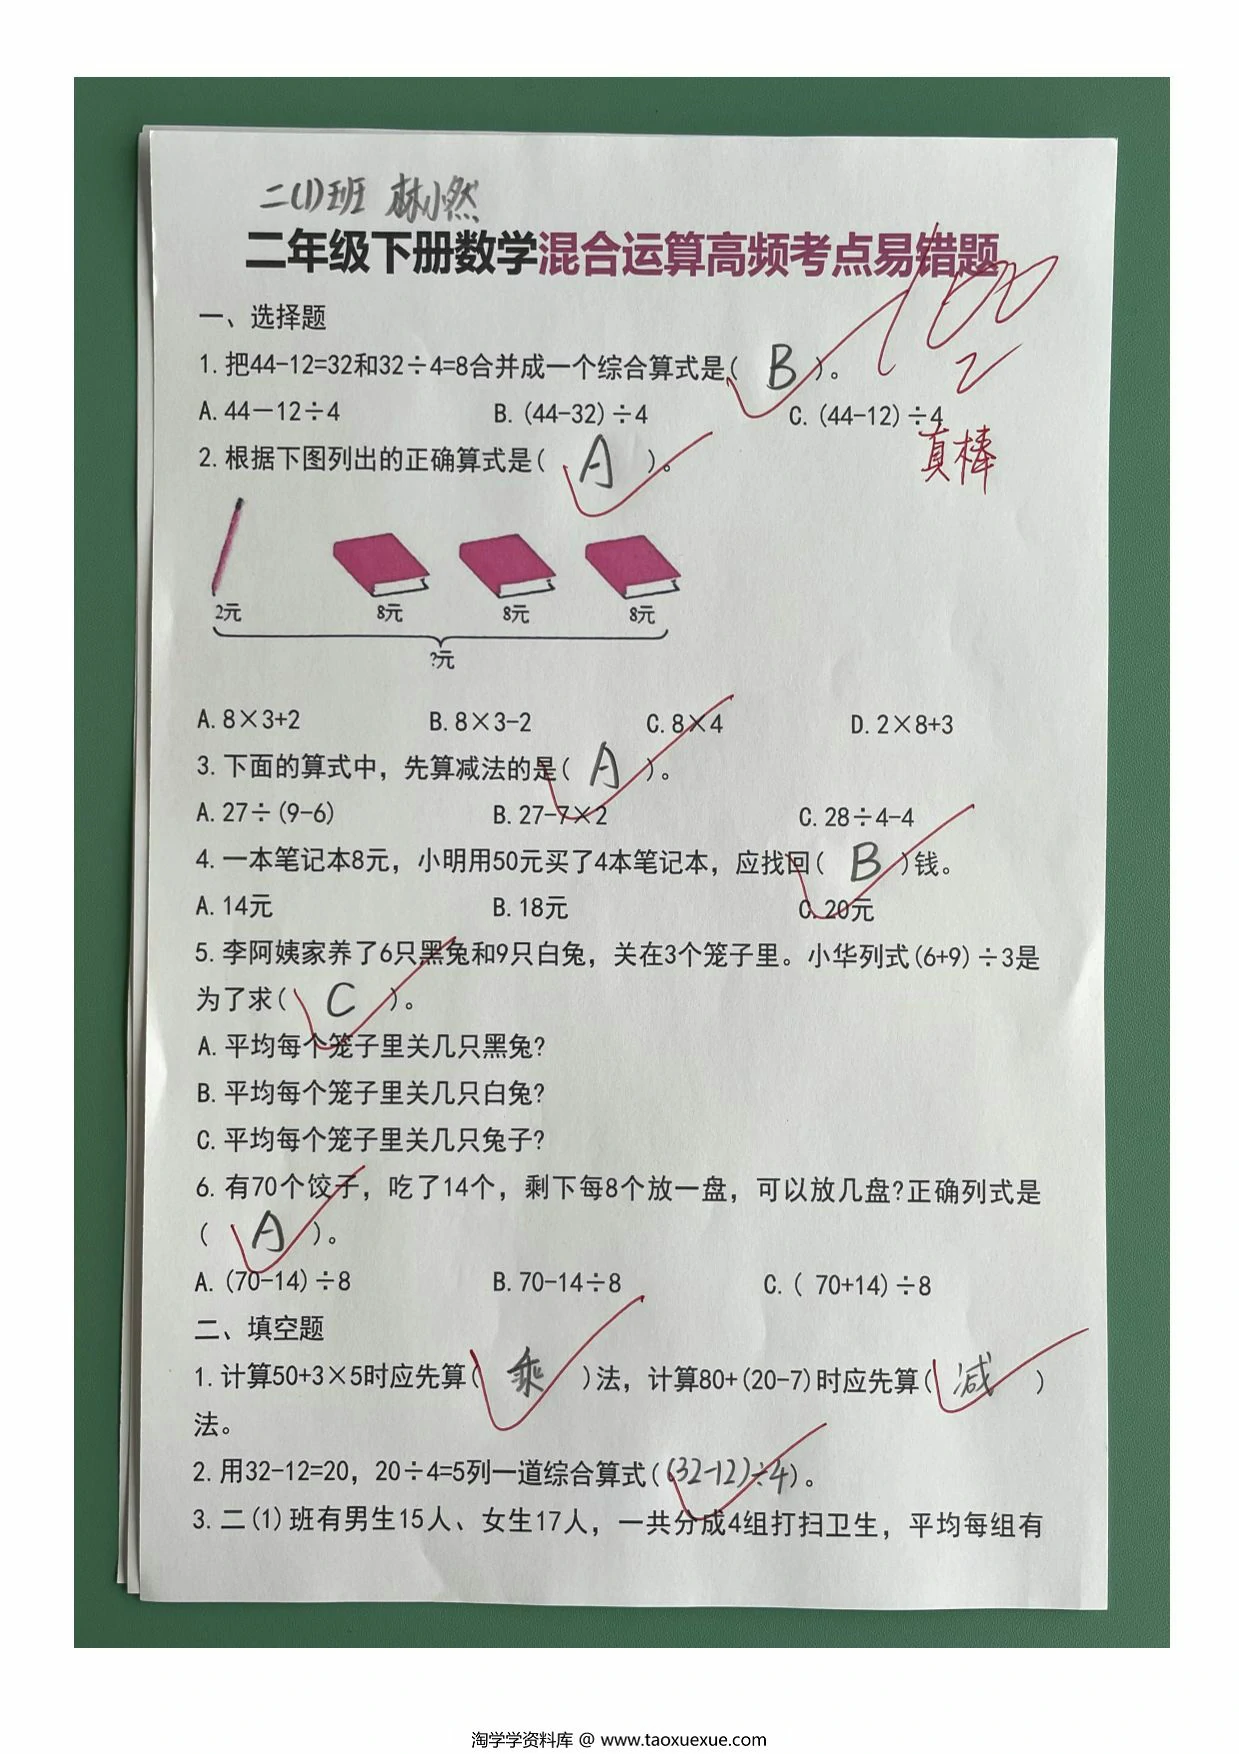 二(1)班 林小然
二年级下册数学混合运算高频考点易错题
100
一、选择题
1.把44-12=32和32÷4=8合并成一个综合算式是( B )。
A.44-12÷4 B.(44-32)÷4 C.(44-12)÷4
真棒
2.根据下图列出的正确算式是( A )。
2元 8元 8元 8元
?元
A.8×3+2 B.8×3-2 C.8×4 D.2×8+3
3.下面的算式中，先算减法的是( A )。
A.27÷(9-6) B.27-7×2 C.28÷4-4
4.一本笔记本8元，小明用50元买了4本笔记本，应找回( B )钱。
A.14元 B.18元 C.20元
5.李阿姨家养了6只黑兔和9只白兔，关在3个笼子里。小华列式(6+9)÷3是
为了求( C )。
A.平均每个笼子里关几只黑兔?
B.平均每个笼子里关几只白兔?
C.平均每个笼子里关几只兔子?
6.有70个饺子，吃了14个，剩下每8个放一盘，可以放几盘?正确列式是
( A )。
A.(70-14)÷8 B.70-14÷8 C.( 70+14)÷8
二、填空题
1.计算50+3×5时应先算( 乘 )法，计算80+(20-7)时应先算( 减 )
法。
2.用32-12=20，20÷4=5列一道综合算式((32-12)÷4)。
3.二(1)班有男生15人、女生17人，一共分成4组打扫卫生，平均每组有
淘学学资料库 @ www.taoxuexue.com